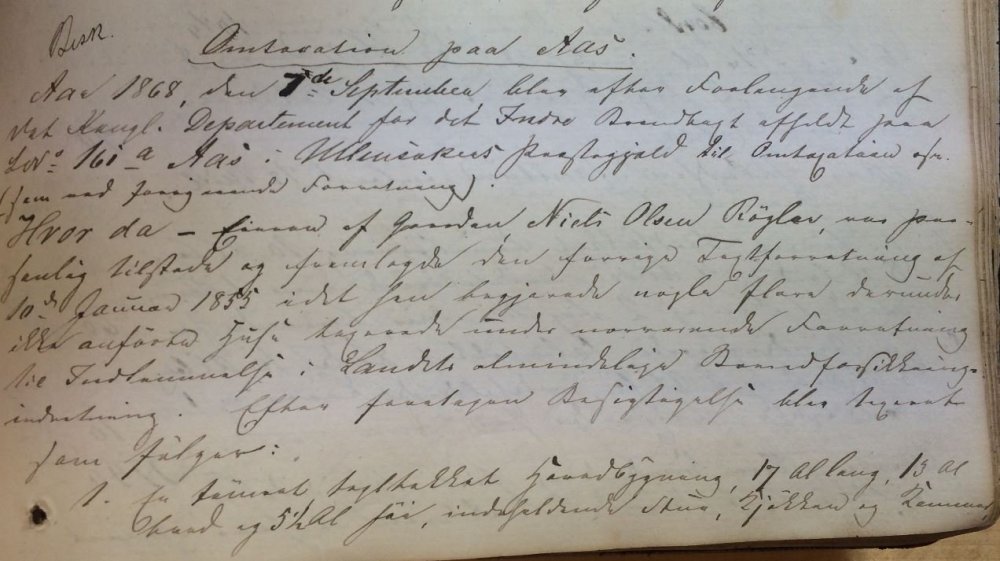 Besk.
Omtaxation paa Aas.
Aar 1868, den 7de September blev efter Forlangende af
det Kongl. Departement for det Indre Brandtaxt afholdt paa
LNo 161a Aas i Ullensakers Præstegjæld til Omtaxation osv.
(som ved foregaaende Forretning).
Hvor da – Eieren af Gaarden, Niels Olsen Røgler, var per-
sonlig tilstede og fremlagde den forrige Taxtforretning af
10de Januar 1855 idet han begjærede nogle flere derunder
ikke anførte Huse taxerede under nærværende Forretning
til Indlemmelse i Landets almindelige Brandforsikrings-
indretning. Efter foretagen Besigtigelse blev taxeret
som følger:
1. En tømret, tegltækket Hovedbygning, 17 Al lang, 13 Al
bred og 5½ Al høi, indeholdende Stue, Kjøkken og Kammer